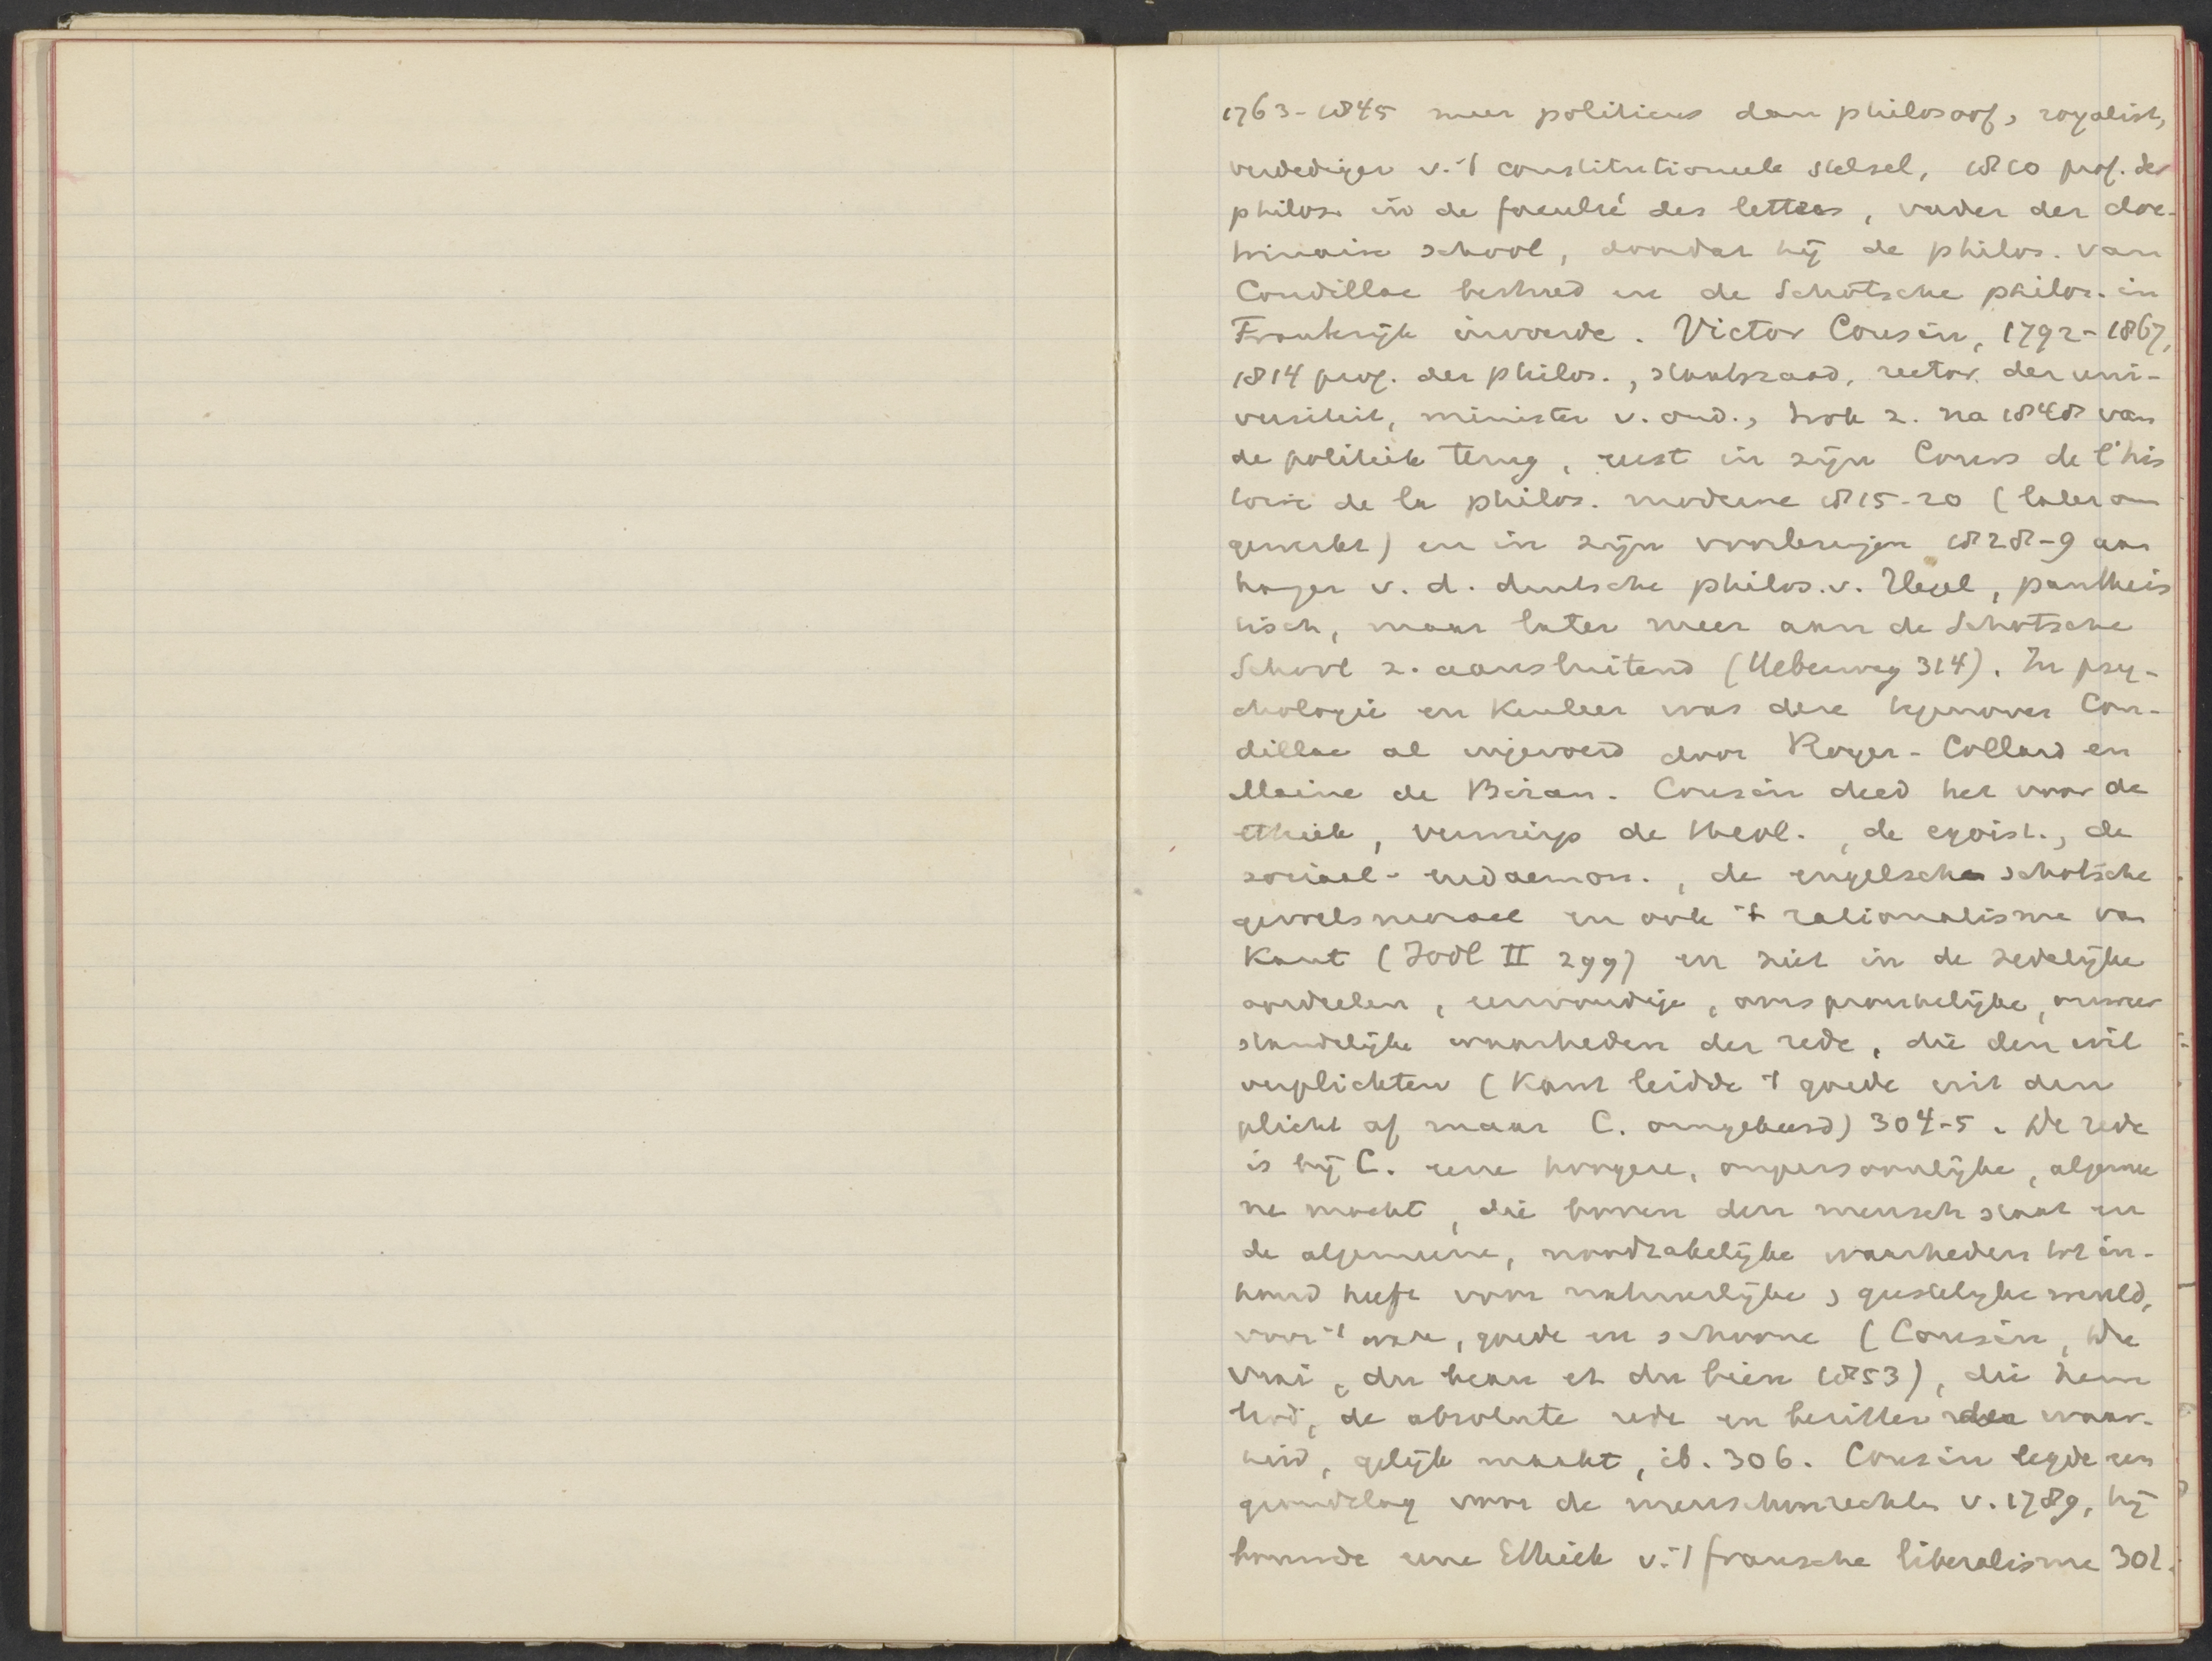 1763-1845 meer politicus dan philosoof, royalist,
verdediger v. 't constitutioneele stelsel, 1810 prof. der
philos. in de faculté des lettres, vader der doc-
trinaire school, doordat hij de philos. van
Condillac bestreed en de Schotsche philos. in
Frankrijk invoerde. Victor Cousin, 1792-1867,
1814 prof. der philos., staatsraad, rector der uni-
versiteit, minister v. ond., trok z. na 1848 van
de politiek terug, eerst in zijn Cours de l'his
toire de la philos. moderne 1815-20 (later om
gewerkt) en in zijn voorlezingen 1828-9 aan
hanger v. d. duitsche philos. v. Hegel, pantheis
tisch, maar later meer aan de Schotsche
School z. aansluitend (Ueberweg 314). In psy-
chologie en kenleer was deze tegenover Con-
dillac al ingevoerd door Royer-Collard en
Maine de Biran. Cousin deed het voor de
ethiek, verwierp de theol., de egoist., de
sociaal-eudaemon., de engelsche schotsche
gevoelsmoraal en ook 't rationalisme van
Kant (Jodl II 299) en ziet in de zedelijke
oordeelen, eenvoudige, oorspronkelijke, onweer
standelijke waarheden der rede, die den wil
verplichten (Kant leidde 't goede uit den
plicht af maar C. omgekeerd) 304-5. De rede
is bij C. eene hoogere, onpersoonlijke, algemee
ne macht, die boven den mensch staat en
de algemeene, noodzakelijke waarheden tot in-
houd heeft voor natuurlijke, geestelijke wereld,
voor 't ware, goede en schoone (Cousin, Du
vrai, du beau et du bien 1853), die hem
God, de absolute rede en bezitter der waar-
heid, gelijk maakt, ib. 306. Cousin legde een
grondslag voor de menschenrechten v. 1789, hij
bouwde eene Ethiek v. 't fransche liberalisme 301.